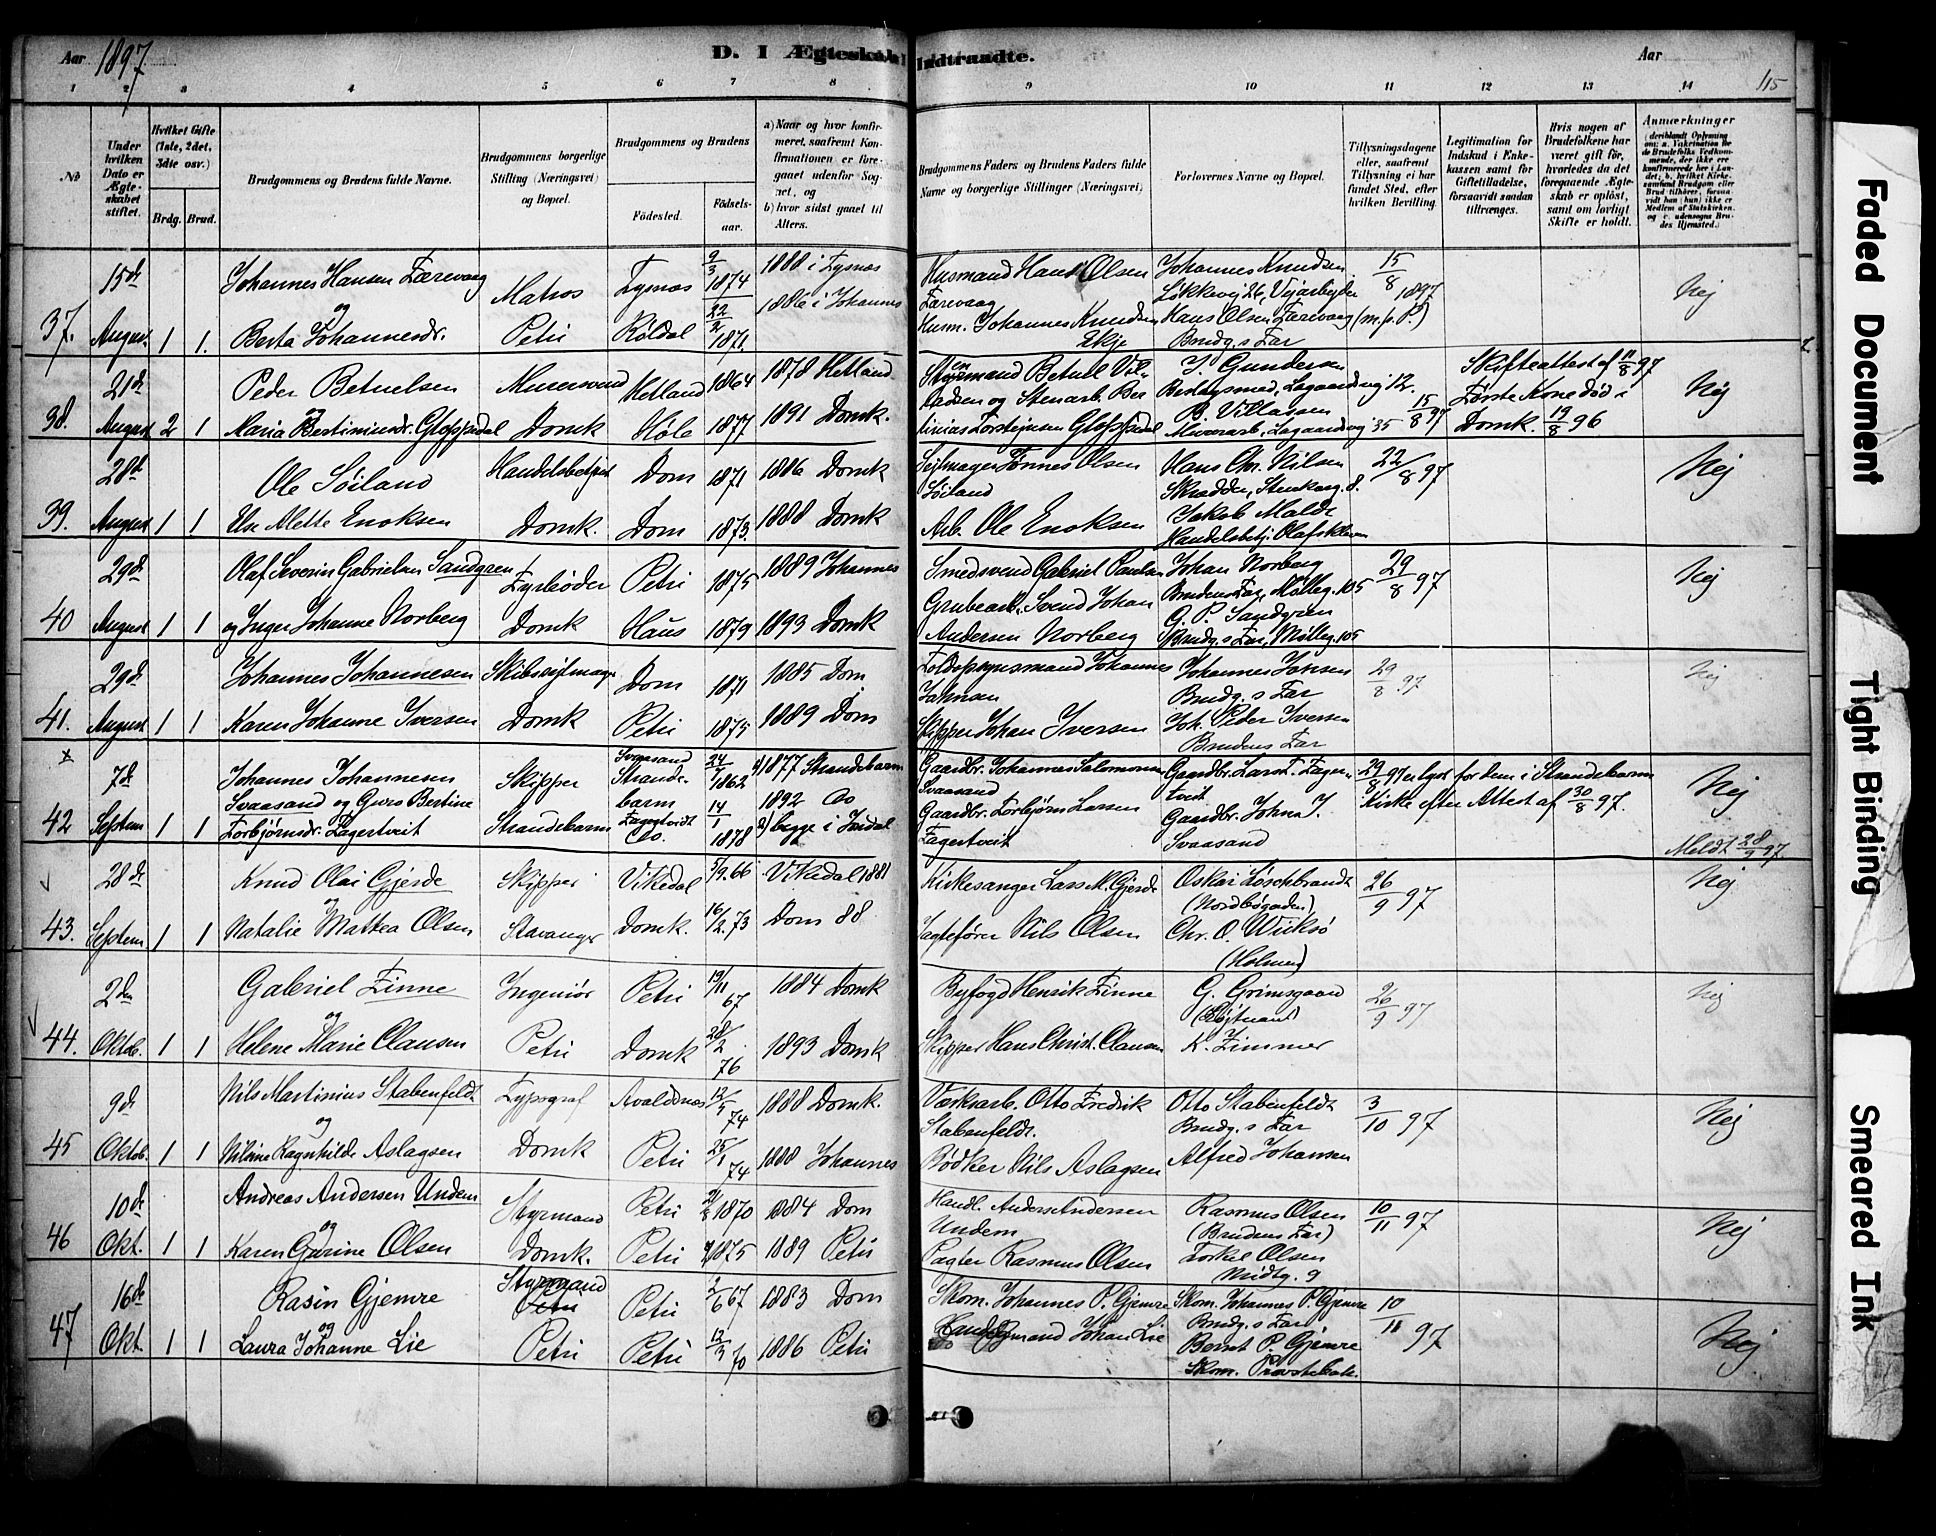 Aar 1897
D. I Ægteskab Indtraadte.
Aar
115
1 2 3 4 5 6 7 8 9 10 11 12 13 14
No
Under hvilken Dato er Ægteskabet stiftet.
Hvilket Gifte (1ste, 2det, 3die osv.)
Brdg. Brud.
Brudgommens og Brudens fulde Navne.
Brudgommens borgerlige Stilling (Næringsvei) og Bopæl.
Brudgommens og Brudens
Fødested.
Fødsels-aar.
a) Naar og hvor konfirmeret, saafremt Konfirmationen er foregaaet udenfor Sognet, og
b) hvor sidst gaaet til Alters.
Brudgommens Faders og Brudens Faders fulde Navne og borgerlige Stillinger (Næringsvei)
Forlovernes Navne og Bopæl.
Tillysningsdagene eller, saafremt Tillysning ei har fundet Sted, efter hvilken Bevilling.
Legitimation for Indskud i Enkekassen samt for Giftetilladelse, forsaavidt saadan tiltrænges.
Hvis nogen af Brudefolkene har været gift før, hvorledes da det foregaaende Ægteskab er opløst, samt om lovligt Skifte er holdt.
Anmærkninger
37. 15de August 1 1.
Johannes Hansen Færevaag
og
Berta Johannesdr.
Matros
Petri
Tysnæs
Röldal
9/3 1874
22/2 1871.
1888 i Tysnæs
1886 i Johannes
Husmand Hans Olsen
Færevaag
Husm. Johannes Knudsen
Ekje
Johannes Knudsen
Løkkevej 26, Vejarbejder
Hans Olsen Færevaag (m.p.P.)
Brudg.s Far
15/8 1897
Nej
38. 21de August 2 1
Peder Betuelsen
og
Maria Bertiniusdr. Gloppedal
Murersvend
Domk
Hetland
Høle
1864
1877
1878 Hetland
1891 Domk.
Betuel Vil-
ladsen og Stenarb. Ber
tinias Torstejnsen Gloppedal
J. Gundersen
Beslagsmed, Lagaardvej 12.
B. Villassen
Murerarb, Lagaardvej 35
15/8 97
Skifteattest af 11/8 97
Første Kone død i
Domk. 19/8 96
Nej
39. 28de August 1 1
Ole Søiland
Else Alette Enoksen
Handelsbetjent
Domk.
Dom
Dom
1871
1873.
1886 Domk
1888 Domk
Sejlmager Tønnes Olsen
Søiland
Arb. Ole Enoksen
Hans Chr. Nilsen
Skrædder, Stenkarg. 8.
Jakob Malde
Handelsbetj. Olafskleven
22/8 97
Nej
40 29de August 1 1
Olaf Severin Gabrielsen Sandgren
og Inger Johanne Norberg
Fyrbøder
Domk
Petri
Haus
1875
1879
1889 Johannes
1893 Domk
Smedsvend Gabriel Paulsen
Grubearb. Svend Johan
Andersen Norberg
Johan Norberg
Brudens Far, Mølleg. 105
G. P. Sandgren
Brudg.s Far, Mølleg. 105
29/8 97
Nej
41. 29de August 1 1
Johannes Johannesen
Karen Johanne Iversen
Skibssejlmager
Domk
Dom
Petri
1871
1875
1885 Dom
1889 Dom
Toldopsynsmand Johannes
Skipper Johan Iversen
Johannes Jansen
Brudg.s Far
Joh. Peder Iversen
Brudens Far
29/8 97
Nej
42 7de Septem 1 1
Johannes Johannesen
Svaasand og Guro Bertine
Torbjørnsdr. Fagertveit
Skipper
Strandebarm
Svaasand
Strande-
barm
Fagertvedt
Do.
24/7 1862
14/1 1878
a) 1877 Strandebarm
1892 Do
b) begge i Jondal
Gaardbr. Johannes Salomonsen
Svaasand
Gaardbr. Torbjørn Larsen
Fagertveit
Gaardbr. Lars T. Fager-
tveit
Gaardbr. Johns J.
Svaasand
29/8 97 er lyst for dem i Strandebarm
Kirke efter Attest af 30/8 97.
Nej
Meldt 28/9 97.
43. 28de Septem. 1 1
Knud Olai Gjerde
og
Natalie Mattea Olsen
Skipper
Stavanger
Vikedal
Domk.
5/9.66
16/2.73
Vikedal 1881
Dom 88
Kirkesanger Lars M. Gjerde
Jagtefører Nils Olsen
Oskar Løschbrandt
(Nordbøgaden)
Chr. O. Wiksø
(Holmen)
26/9 97
Nej
44. 2den Oktob. 1 1
Gabriel Finne
og
Helene Marie Clausen
Ingeniør
Petri
Petri
Domk
19/11 67
28/2 76
1884 Domk
1893 Domk
Byfogd Henrik Finne
Skipper Hans Christ. Clausen
G. Grimsgaard
(Løjtnant)
K. Zimmer
26/9 97
Nej
45 9de Oktob. 1 1
Nils Martinius Stabenfeldt
og
Niline Ragnhilde Aslagsen
Typograf
Domk
Avaldsnæs
Petri
12/5 74
25/1 74
1888 Domk.
1888 Johannes
Værksarb. Otto Fredrik
Stabenfeldt.
Bødker Nils Aslagsen
Otto Stabenfeldt
Brudg.s Far
Alfred Johansen
3/10 97
Nej
46 10de Okt. 1 1
Andreas Andersen Undem
og
Karen Gurine Olsen
Styrmand
Domk.
Petri
Petri
1870
1875
1884 Dom
1889 Petri
Handl. Anders Andersen
Undem
Pagter Rasmus Olsen
Rasmus Olsen
(Brudens Far)
Torkel Olsen
Nidtg. 9
10/11 97
Nej
47 16de Okt. 1 1
Rasin Gjemre
og
Laura Johanne Lie
Styrmand
Petri
Petri
Petri
Petri
2/6 67
12/3 70
1883 Dom
1886 Petri
Skom. Johannes P. Gjemre
Handelsmand Johan Lie
Skom. Johannes P. Gjemre
Brudg.s Far
Bernt P. Gjemre
Skom. Provstebak.
10/11 97
Nej
Faded Document
Tight Binding
Smeared Ink